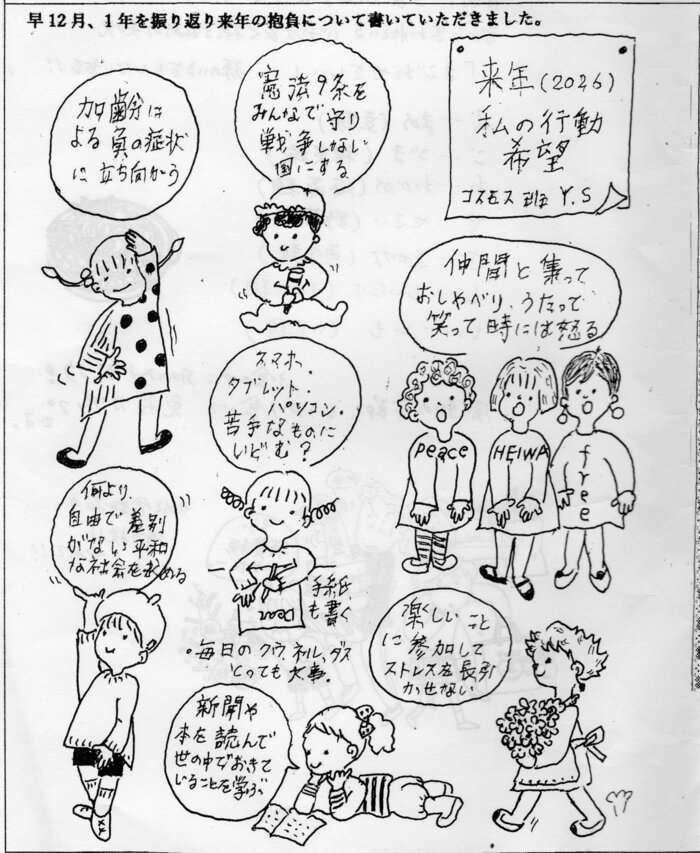 早12月、1年を振り返り来年の抱負について書いていただきました。
来年(2026)
私の行動
希望
コスモス班 Y.S
憲法9条を
みんなで守り
戦争しない
国にする
加齢分に
よる負の症状
に立ち向かう
仲間と集って
おしゃべり、うたって
笑って時には怒る
peace
HEIWA
free
スマホ・
タブレット・
パソコン・
苦手なものに
いどむ?
Dear
手紙
も書く
・毎日のクウ、ネル、ダス
とっても大事。
何より
自由で差別
がない平和
な社会を求める
楽しいこと
に参加して
ストレスを長引
かせない
新聞や
本を読んで
世の中でおきて
いることを学ぶ